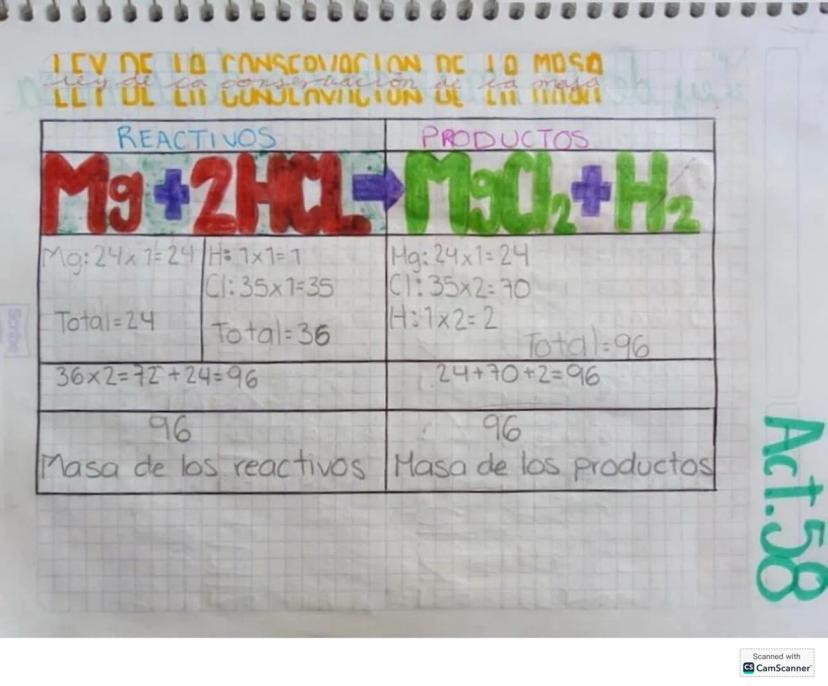 LEY DE LA CONSERVACION DE LA MASA
Ley de la conservación de la masa
REACTIVOS
PRODUCTOS
Mg+2HCL→MgCl2+H2
Mg: 24x1=24
Total=24
H: 1x1=1
Cl: 35x1=35
Total=36
Mg: 24x1=24
Cl: 35x2=70
H: 1x2=2
Total=96
36x2=72+24=96
24+70+2=96
96
Masa de los reactivos
96
Masa de los productos
Act.58
Scribe
Scanned with
CS CamScanner